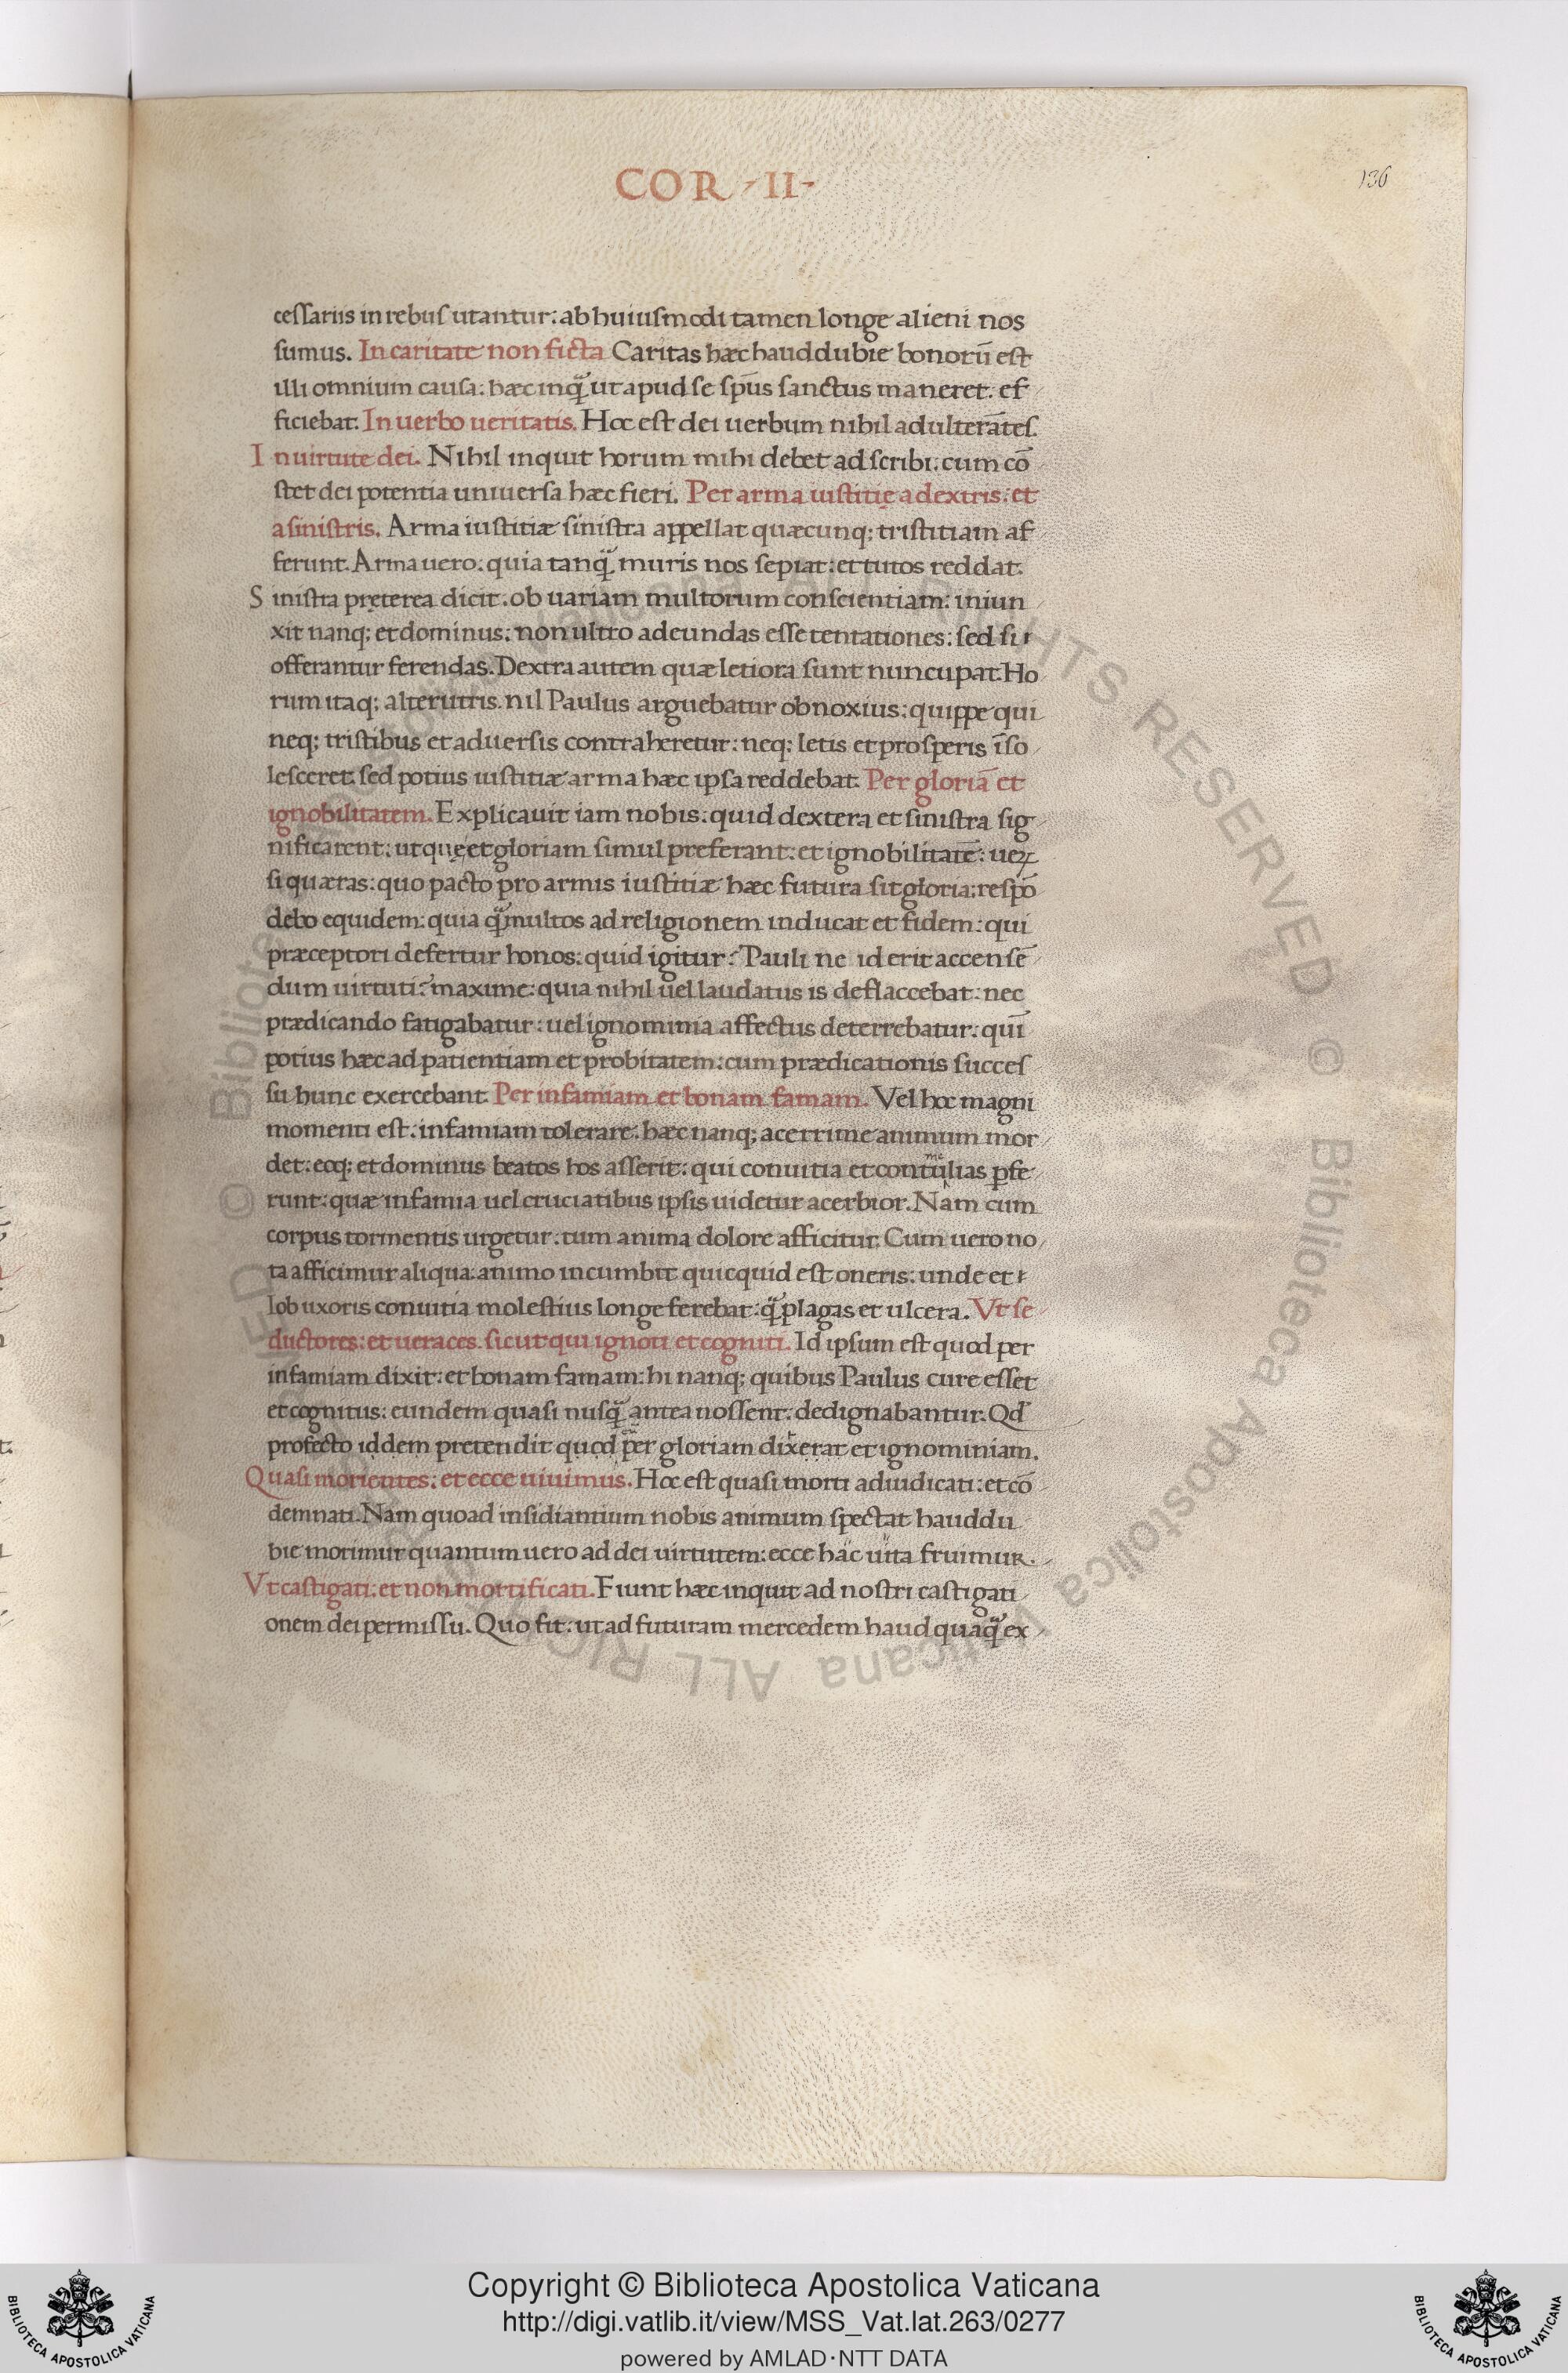 COR - II -
136
cessariis in rebus utantur: ab huiusmodi tamen longe alieni nos
sumus. In caritate non ficta Caritas hæc haud dubie bonorū est
illi omnium causa: hæc inqꝗ̃ ut apud se sp̄us sanctus maneret: ef
ficiebat. In uerbo ueritatis. Hoc est dei uerbum nihil adulterātes.
In uirtute dei. Nihil inquit horum mihi debet ad scribi: cum cō
stet dei potentia uniuersa hæc fieri. Per arma iustitię a dextris: et
a sinistris. Arma iustitiæ sinistra appellat quæcunq; tristitiam af
ferunt. Arma uero: quia tanꝗ̃ muris nos sepiat: et tutos reddat.
Sinistra pręterea dicit: ob uariam multorum conscientiam: iniun
xit nanq; et dominus: non ultro adeundas esse tentationes: sed si
offerantur ferendas. Dextra autem quæ letiora sunt nuncupat. Ho
rum itaq; alterutris nil Paulus arguebatur obnoxius: quippe qui
neq; tristibus et aduersis contraheretur: neq; letis et prosperis īso
lesceret: sed potius iustitiæ arma hæc ipsa reddebat. Per gloriā et
ignobilitatem. Explicauit iam nobis: quid dextera et sinistra sig
nificarent: utque et gloriam simul preferant: et ignobilitatē: ueꝝ
si quæras: quo pacto pro armis iustitiæ hæc futura sit gloria: respō
debo equidem: quia ꝗ̃multos ad religionem inducat et fidem: qui
præceptori defertur honos: quid igitur? Pauli ne id erit accensē
dum uirtuti? maxime: quia nihil uel laudatus is deflaccebat: nec
prædicando fatigabatur: uel ignominia affectus deterrebatur: quī
potius hæc ad patientiam et probitatem: cum prædicationis succes
su hunc exercebant. Per infamiam et bonam famam. Vel hoc magni
momenti est: infamiam tolerare: hæc nanq; acerrime animum mor
det: eoq; et dominus beatos hos asserit: qui conuitia et contumelias ꝑfe
runt: quæ infamia uel cruciatibus ipsis uidetur acerbior. Nam cum
corpus tormentis urgetur: tum anima dolore afficitur. Cum uero no
ta afficimur aliqua: animo incumbit quicquid est oneris: unde et
Iob uxoris conuitia molestius longe ferebat: ꝗ̃ plagas et ulcera. Vt se
ductores: et ueraces. sicut qui ignoti et cogniti. Id ipsum est quod per
infamiam dixit: et bonam famam: hi nanq; quibus Paulus cure esset
et cognitus: eundem quasi nusꝗ̃ antea nossent: dedignabantur. Qd̄
profecto iddem pretendit quod per gloriam dixerat et ignominiam.
Quasi morientes: et ecce uiuimus. Hoc est quasi morti adiudicati: et cō
demnati. Nam quoad insidiantium nobis animum spectat haud du
bie morimur quantum uero ad dei uirtutem: ecce hac uita fruimur.
Vt castigati: et non mortificati. Fiunt hæc inquit ad nostri castigati
onem dei permissu. Quo fit: ut ad futuram mercedem haud quaꝗ̃ ex
Copyright © Biblioteca Apostolica Vaticana
http://digi.vatlib.it/view/MSS_Vat.lat.263/0277
powered by AMLAD·NTT DATA
BIBLIOTECA APOSTOLICA VATICANA
BIBLIOTECA APOSTOLICA VATICANA